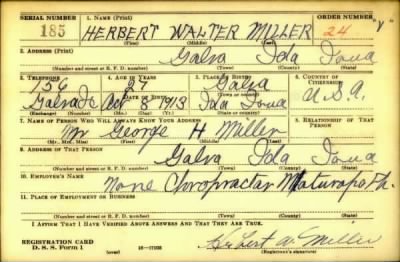 SERIAL NUMBER 1. NAME (Print) ORDER NUMBER
185 HERBERT WALTER MILLER 24
(First) (Middle) (Last)
2. ADDRESS (Print)
Galva Ida Iowa
(Number and street or R. F. D. number) (Town) (County) (State)
3. TELEPHONE 4. AGE IN YEARS 5. PLACE OF BIRTH 6. COUNTRY OF CITIZENSHIP
156 27 Galva
Galva Ia Oct 8 1913 Ida Iowa U.S.A.
(Exchange) (Number) (Mo.) (Day) (Yr.) (State or country)
7. NAME OF PERSON WHO WILL ALWAYS KNOW YOUR ADDRESS 8. RELATIONSHIP OF THAT PERSON
Mr George H Miller
(Mr., Mrs., Miss) (First) (Middle) (Last)
9. ADDRESS OF THAT PERSON
Galva Ida Iowa
(Number and street or R. F. D. number) (Town) (County) (State)
10. EMPLOYER'S NAME
None Chropractar Naturapath.
11. PLACE OF EMPLOYMENT OR BUSINESS
(Number and street or R. F. D. number) (Town) (County) (State)
I AFFIRM THAT I HAVE VERIFIED ABOVE ANSWERS AND THAT THEY ARE TRUE.
REGISTRATION CARD
D. S. S. Form 1 (over) Herbert W. Miller
(Registrant's signature)